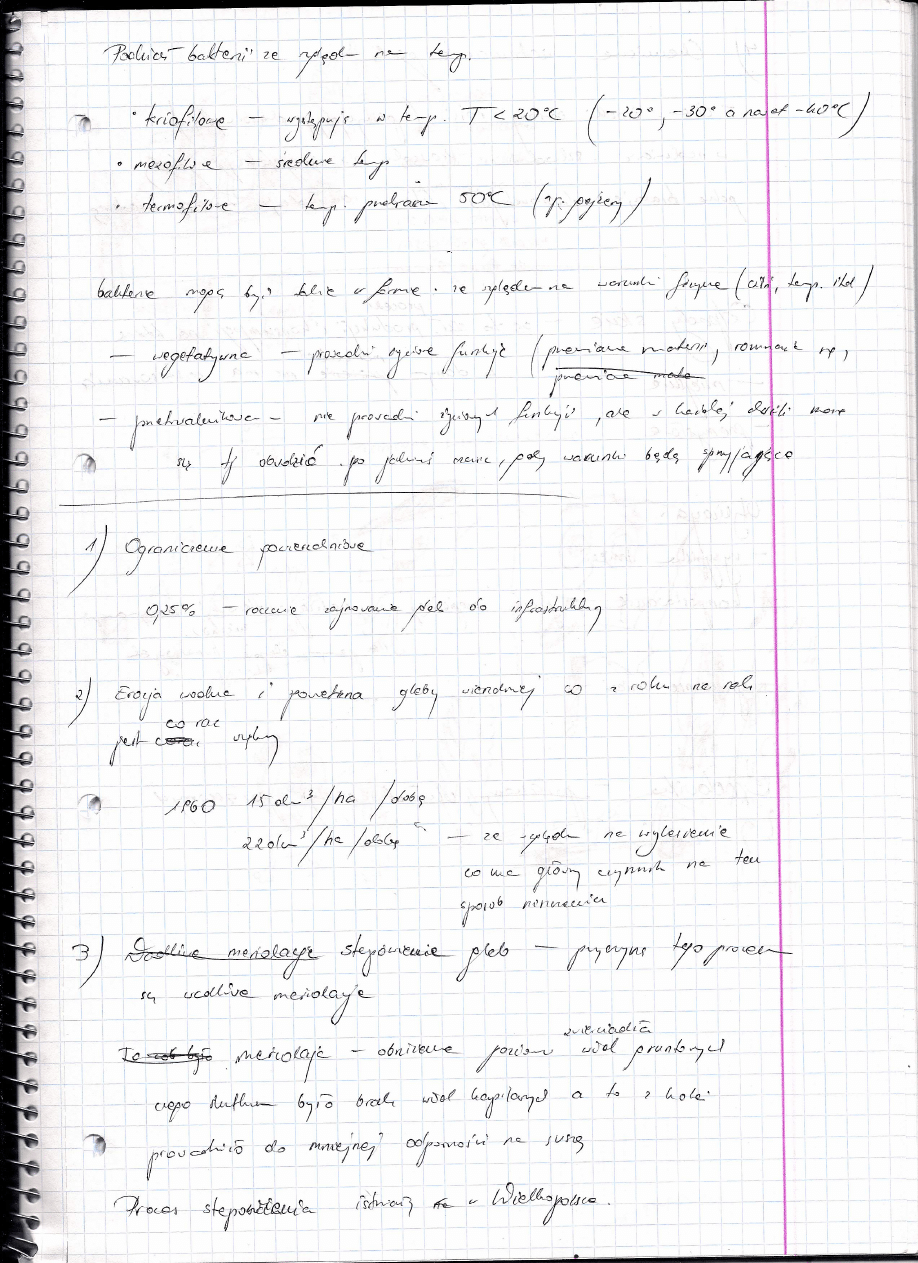 Podział bakterii ze względu na temp.
• kriofilowe – występują w temp. T < 20°C (-20°, -30° a nawet -40°C)
• mezofilowe – średnie temp
• termofilowe – temp. powyżej 50°C (np. pożary)
bakterie mogą być także w formie ze względu na warunki fizyczne (ciśn, temp. itd)
– wegetatywna – prowadzi życiowe funkcje (przemiana materii, rozmnaż się,
przemiana mate
– przetrwalnikowa – nie prowadzi życiowych funkcji, ale w każdej chwili może
się obudzić po jakimś czasie, gdy warunki będą sprzyjające
1) Ograniczenie powierzchniowe
0,25% – roczne zajmowanie gleb do infrastruktury
2) Erozja wodna i powietrzna gleby wierzchniej co z roku na rok
jest coraz co raz większy
1960 15 dm³/ha/dobę
220 dm³/ha/dobę – ze względu na wylesienie
co ma główny czynnik na ten
sposób niszczenia
3) Wadliwe meriolacje stepowienie gleb – przyczyną tego procesu
są wadliwe meriolacje
zwierciadła
To meriolacja – obniżenie poziomu wód gruntowych
czego skutkiem było brak wód kapilarnych a to z kolei
prowadziło do mniejszej odporności na suszę
Proces stepowienia istnieje w Wielkopolsce.